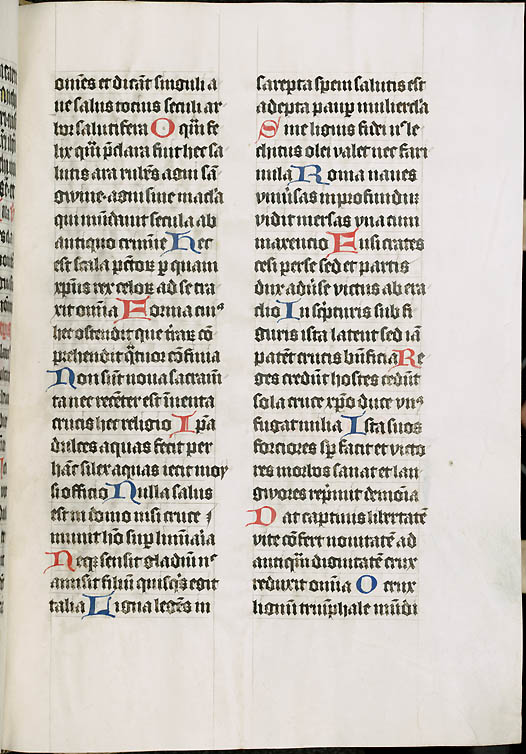 om̄es et dicāt singuli a
ue salus totius seculi ar
bor salutifera O q̄ꝫ fe
lix q̄ꝫ p̄clara fuit hec sa
lutis ara rubēs agni sā
gwine agni sine macl'a
qui mūdauit secula ab
antiquo crimīe Hec
est scala pctōꝝ p quam
xp̄us rex celoꝝ ad se tra
xit om̄ia Forma eiꝰ
hec ostendit que tr̄aꝝ cō
prehendit q̄tuor cōfinia
Non sūt noua sacram̄
ta nec recēter est īuenta
crucis hec religio Ip̄a
dulces aquas fecit per
hāc silex aquas iecit moy
si officio Nulla salus
est in domo nisi cruce
munit hō sup̄
Neqꝫ sensit gladiū nꝰ
amisit filiū quisqs egit
talia Ligna legēs in
sarepta spem salutis est
adepta paup mulierc'la
Sine lignis fidei nc̄ le
chitus olei valet nec fari
nula Roma naues
vniūsas in profundum
vidit mersas vna cum
maxencio Fusi trates
cesi perse sed et partis
dux aduīse victus ab era
clio In scpturis sub fi
guris ista latent sed iā
patēt crucis būficia Re
ges credūt hostes cedūt
sola cruce xpo duce vnꝰ
fugat milia Ista suos
forciores sp̄ facit et victo
res morbos sanat et lan
gwores rep̄mit demōia
Dat captiuis libertatē
vite cōfert nouitatē ad
antiquā dignitatē crux
reduxit om̄ia O crux
lignū triūphale mūdi